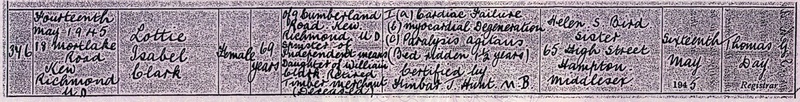 346
Fourteenth
May 1945
19 Mortlake
Road
Kew
Richmond
U D
Lottie
Isabel
Clark
Female
69
years
of 9 Cumberland
Road. Kew.
Richmond, U D
Spinster of
Independent means
Daughter of William
Clark Retired
Timber merchant
(Deceased)
I (a) Cardiac Failure
(b) myocardial Degeneration
(c) Paralysis agitans
(Bed ridden years)
Certified by
J. Hunt M.B.
Helen S Bird
Sister
65 High Street
Hampton
Middlesex
Sixteenth
May
1945
Thomas G
Day
Registrar